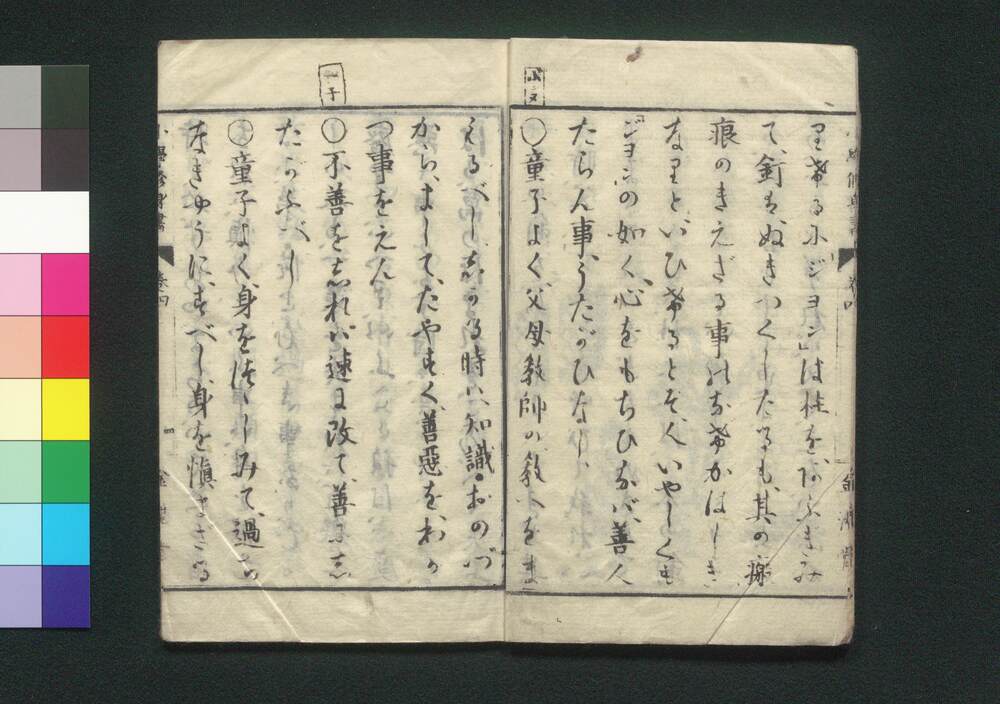 りけるにジョン」は柱をあふきみ
て、釘は、ぬきつくしたるも、其の瘢
痕のきえざる事のなけかはしき
なりと、いひけるとぞ、人いやしくも
ジョンの如く、心をもちひなば、善人
たらん事、うたがひなし、
○童子よく父母教師の教へをま
もるべし、しかる時は、知識、おのづ
から、まして、たやすく、善悪を、わか
つ事をえん
○不善をしれば、速に改て、善にし
たがふべし
○童子よく、身をつゝしみて、過ち
なきやうに、すべし、身を慎まさる
小學修身書
卷四